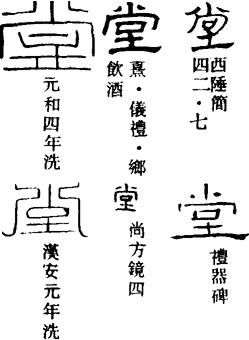 堂
西陲簡
四二・七
堂
熹・儀禮・鄉
飲酒
堂
元和四年洗
堂
禮器碑
堂
尚方鏡四
堂
漢安元年洗